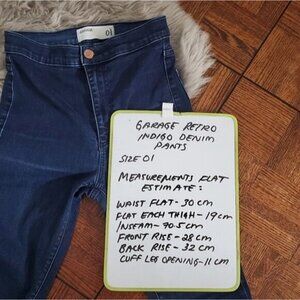 01
GARAGE RETRO
INDIGO DENIM
PANTS
SIZE 01
MEASUREMENTS FLAT
ESTIMATE:
WAIST FLAT - 30 CM
FLAT EACH THIGH - 19 CM
INSEAM - 70.5 CM
FRONT RISE - 28 CM
BACK RISE - 32 CM
CUFF LEG OPENING - 11 CM